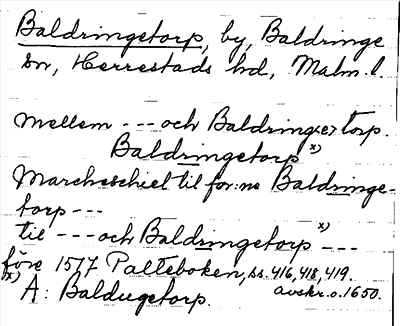 Baldringetorp, by, Baldringe
sn, Herrestads hd, Malm. l.
mellem --- och Baldring(e)torp.
Baldringetorp x)
Marcheschiel til for:ne Baldringe-
torp ---
til --- och Baldringetorp x) ---
före 1577 Palteboken, ss. 416, 418, 419.
x) A: Baldugetorp. avskr. o. 1650.